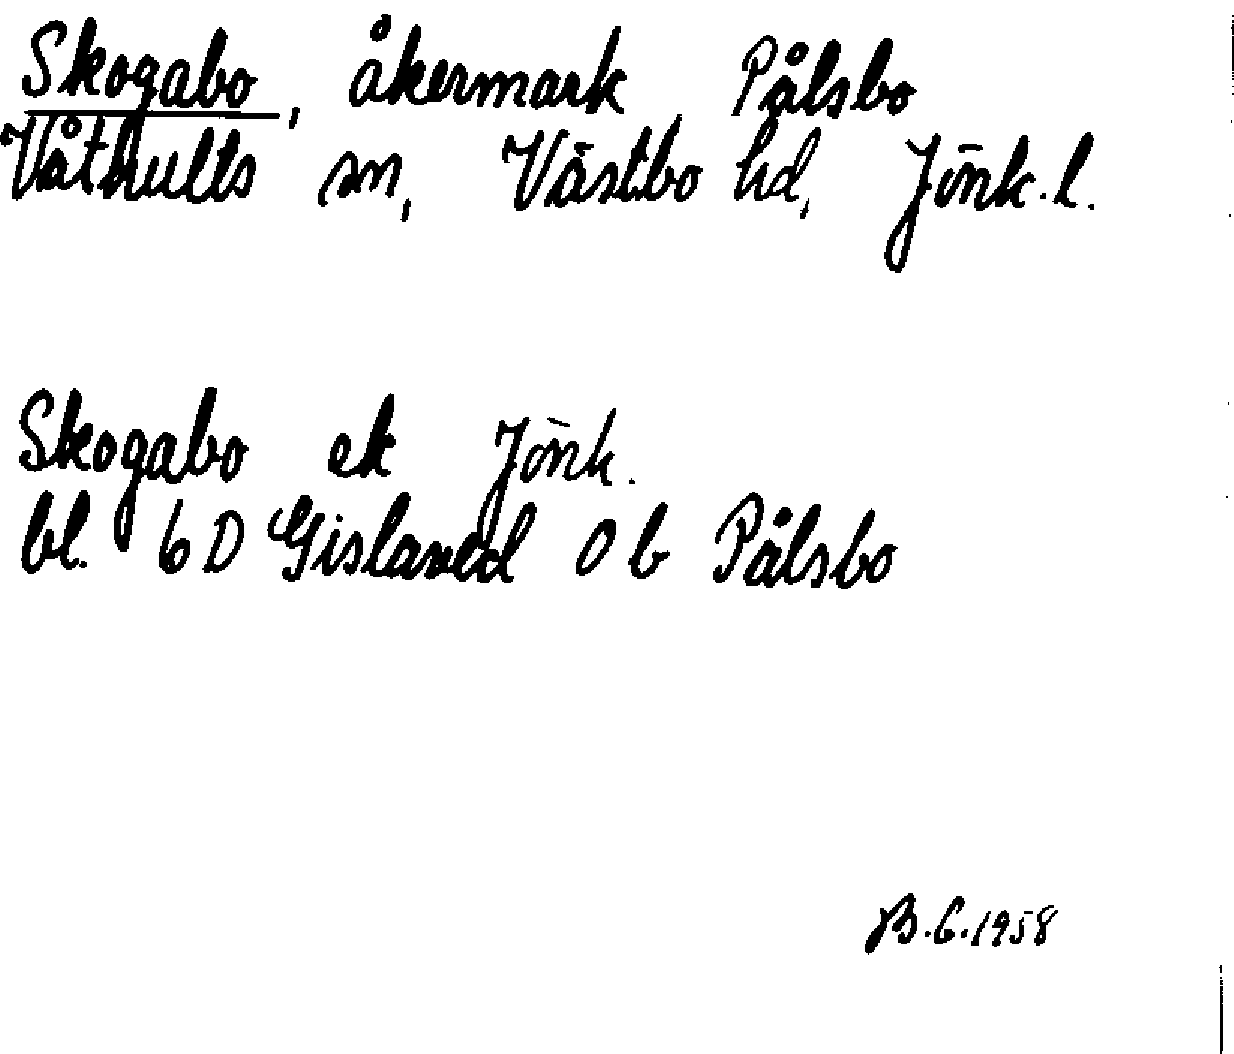 Skogabo, åkermark Pålsbo
Våthults sn, Västbo hd, Jönk. l.
Skogabo ek Jönk.
bl. 6D Gislaved 0 b Pålsbo
B.G.1958